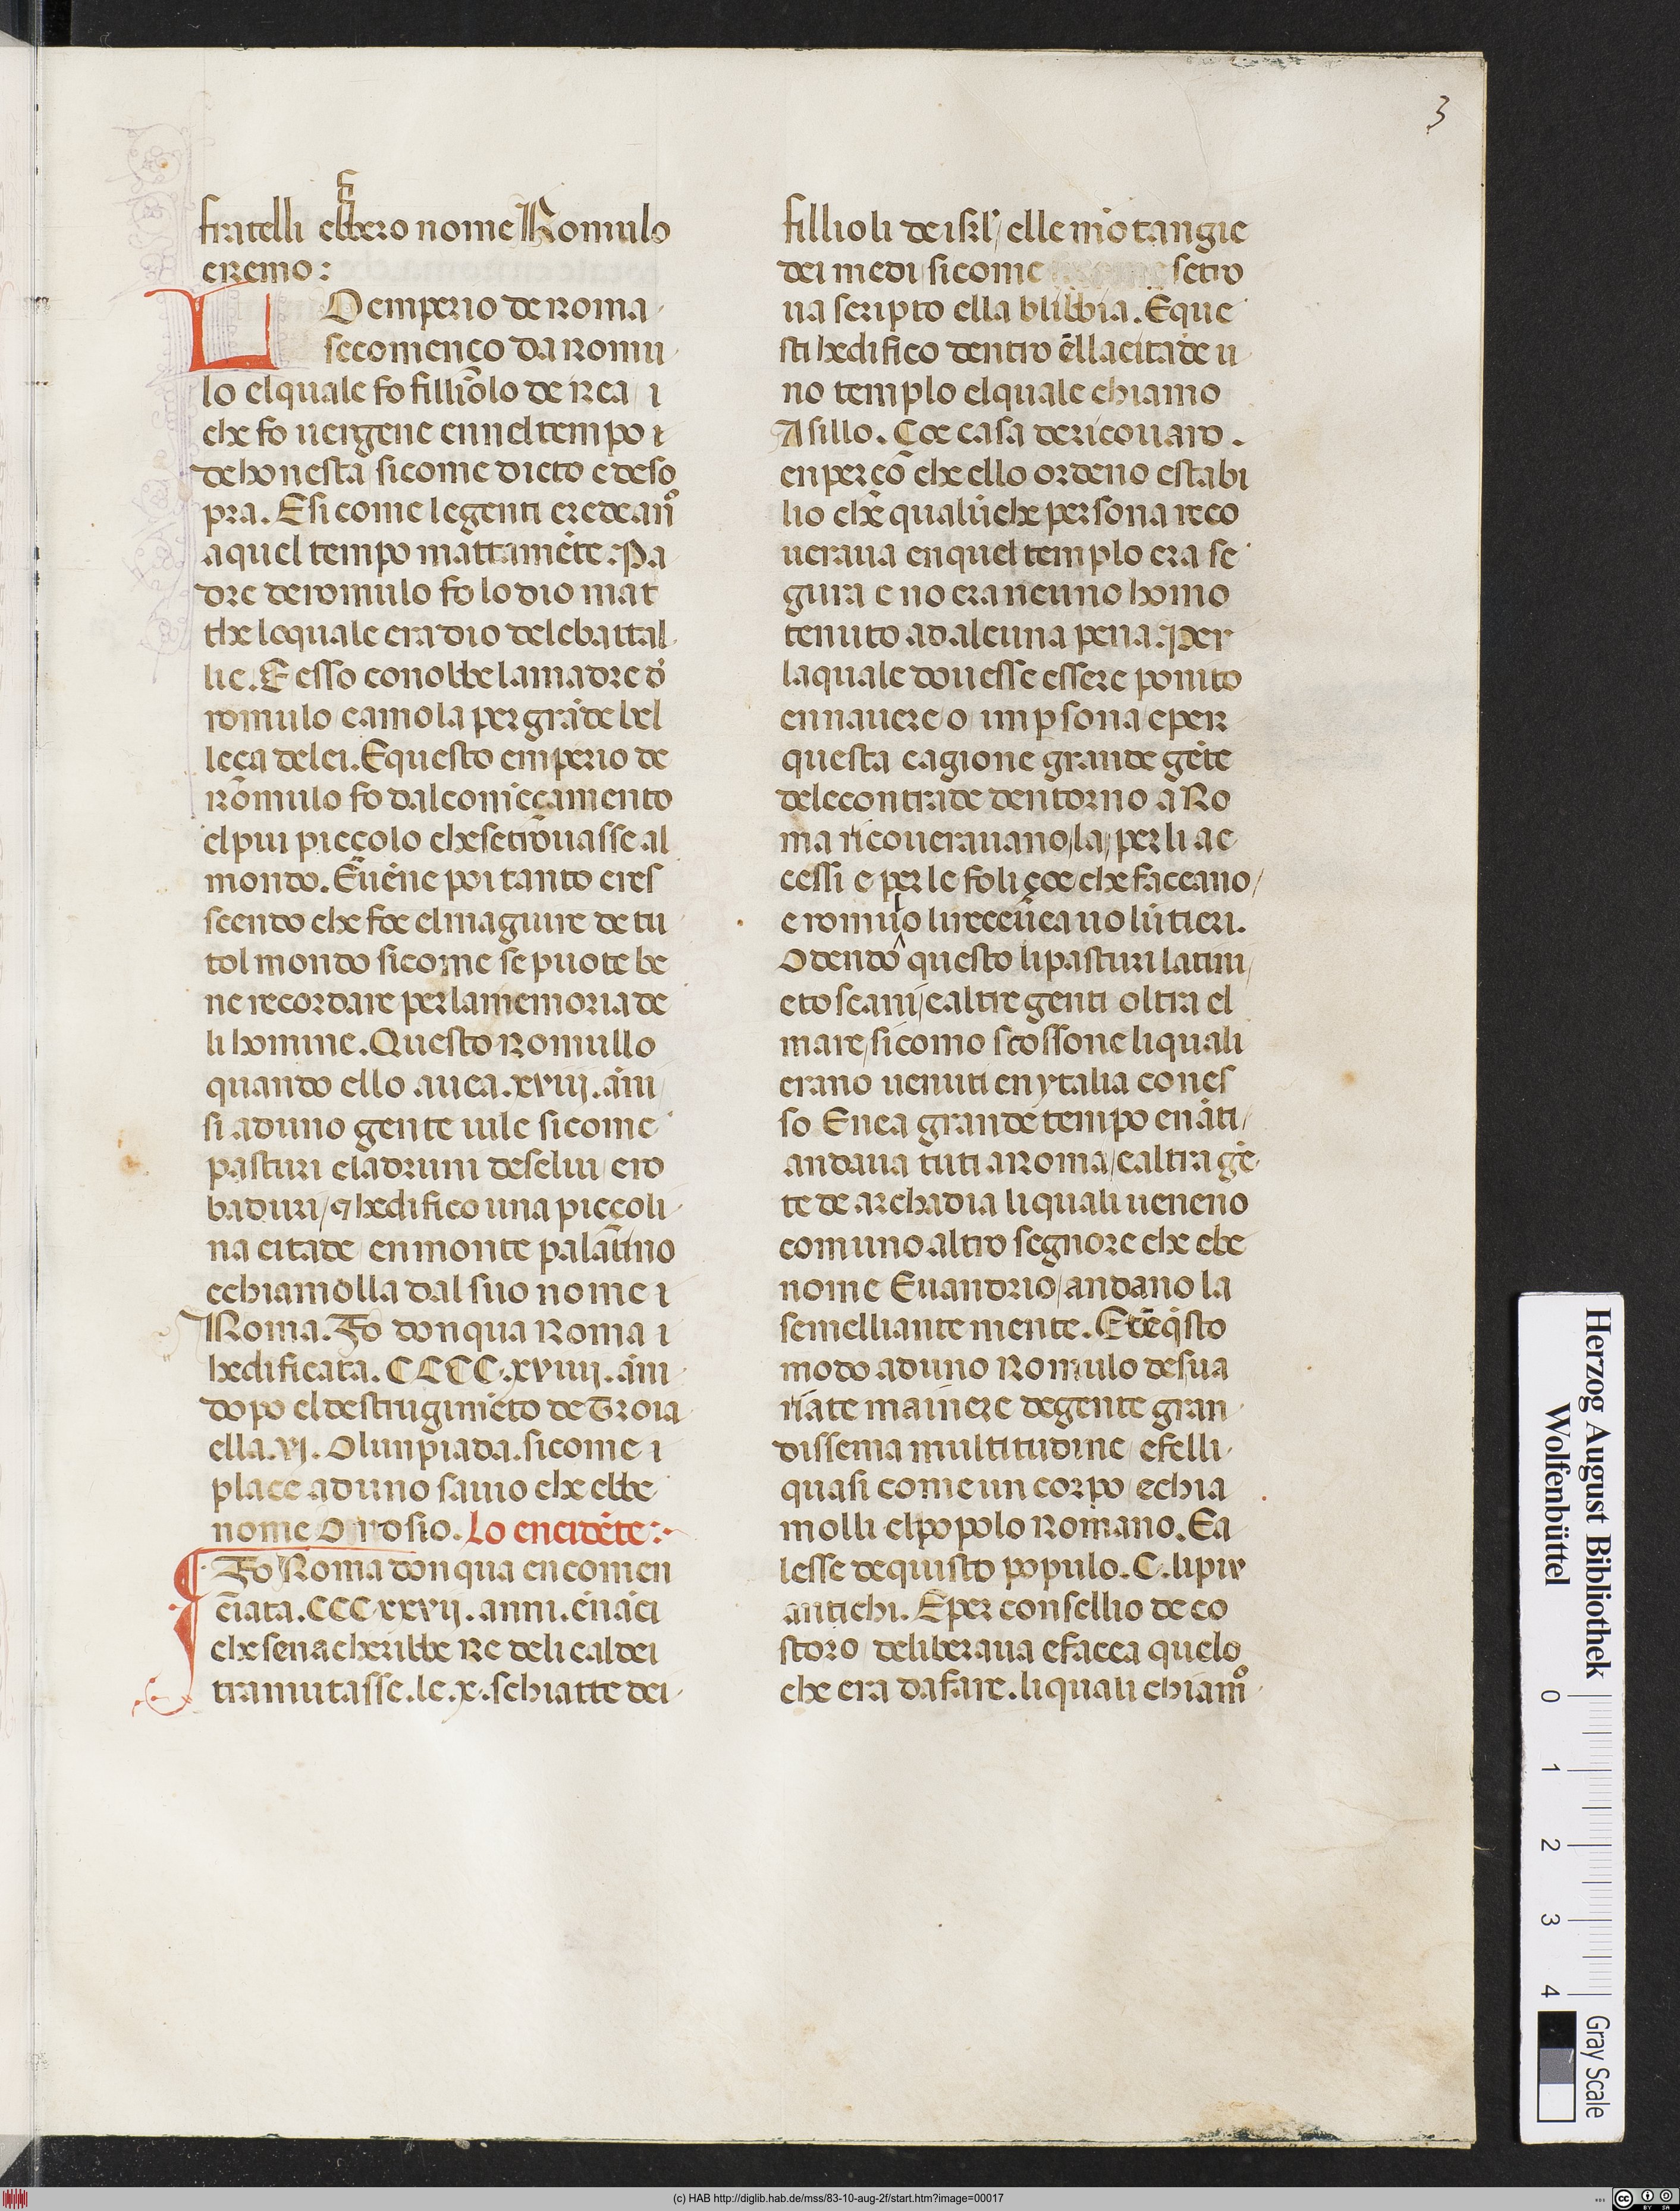 3
fratelli ebbero nome Romulo
eremo:
LO emperio de roma
se començo da romu
lo el quale fo filliolo de rea i
che fo uergene en nel tempo i
de honestà sicome dicto e de so
pra. E si come le genti credeanº
a quel tempo mattamēte. Pa
dre de romulo fo lo dio mat
the lo quale era dio dele battal
lie. E esso conobbe la madre d̄
romulo e amola per grāde bel
leça de lei. E questo emperio de
rōmulo fo dal comēçamento
el piu piccolo che se trouasse al
mondo. E uēne poi tanto cres
scendo che foe el maguire de tu
tol mondo sicome se puote be
ne recordare per la memoria de
li homine. Questo romullo
quando ello auea .xviij. āni
si aduno gente uile sicome
pasturi e ladruni de selui / e ro
baduri / ⁊ hedifico una piccoli
na citade en monte palatino
e chiamolla dal suo nome i
Roma. Fo donqua Roma i
hedificata. CCCC.xviiij. āni
dopo el destrugimēto de Troia
ella .vj. Olimpiada. sicome i
place ad uno sauio che ebbe
nome Orosio. Lo encidēte:
Fo Roma donqua encomen
ciata. CCC xxvij. anni. ēnāci
che senacheribbe Re de li caldei
tramutasse. le .x. schiatte dei
fillioli de isrl' / elle mōtangie
dei medi / sicome setro
ua scripto ella blibbia. E que
sti hedifico dentro ella citade u
no templo el quale chiamo
Asillo. Çoe casa de ricouaro.
en per çō che ello ordeno e stabi
lio che qualūche persona reco
ueraua en quel templo era se
gura e no era neuno homo
tenuto ad alcuna pena. Per
la quale douesse essere ponito
en nauere / o im psona / e per
questa cagione grande gēte
dele contrade dentorno a Ro
ma ricouerauano / la / per li ac
cessi e per le foli çoe che faceano /
e romulo li receueano lūtieri.
Odendo questo li pasturi latini /
e toscani / e altre genti oltra el
mare / sicomo scossone li quali
erano uenuti en ytalia con es
so Enea grande tempo enāti /
andaua tuti a Roma / e altra gē
te de archadia li quali ueneno
com uno altro segnore che ebe
nome Euandrio / andano la
semelliante mente. E ēn q̄sto
modo aduno Romulo de sua
riate mainere de gente gran
dissema multitudine / e felli
quasi come un corpo / e chia
molli el popolo Romano. E a
lesse de quisto populo. C. li piu
antichi. E per consellio de co
storo deliberaua e facea quelo
che era da fare. li quali chiamº
Herzog August Bibliothek
Wolfenbüttel
0 1 2 3 4
Gray Scale
(c) HAB http://diglib.hab.de/mss/83-10-aug-2f/start.htm?image=00017